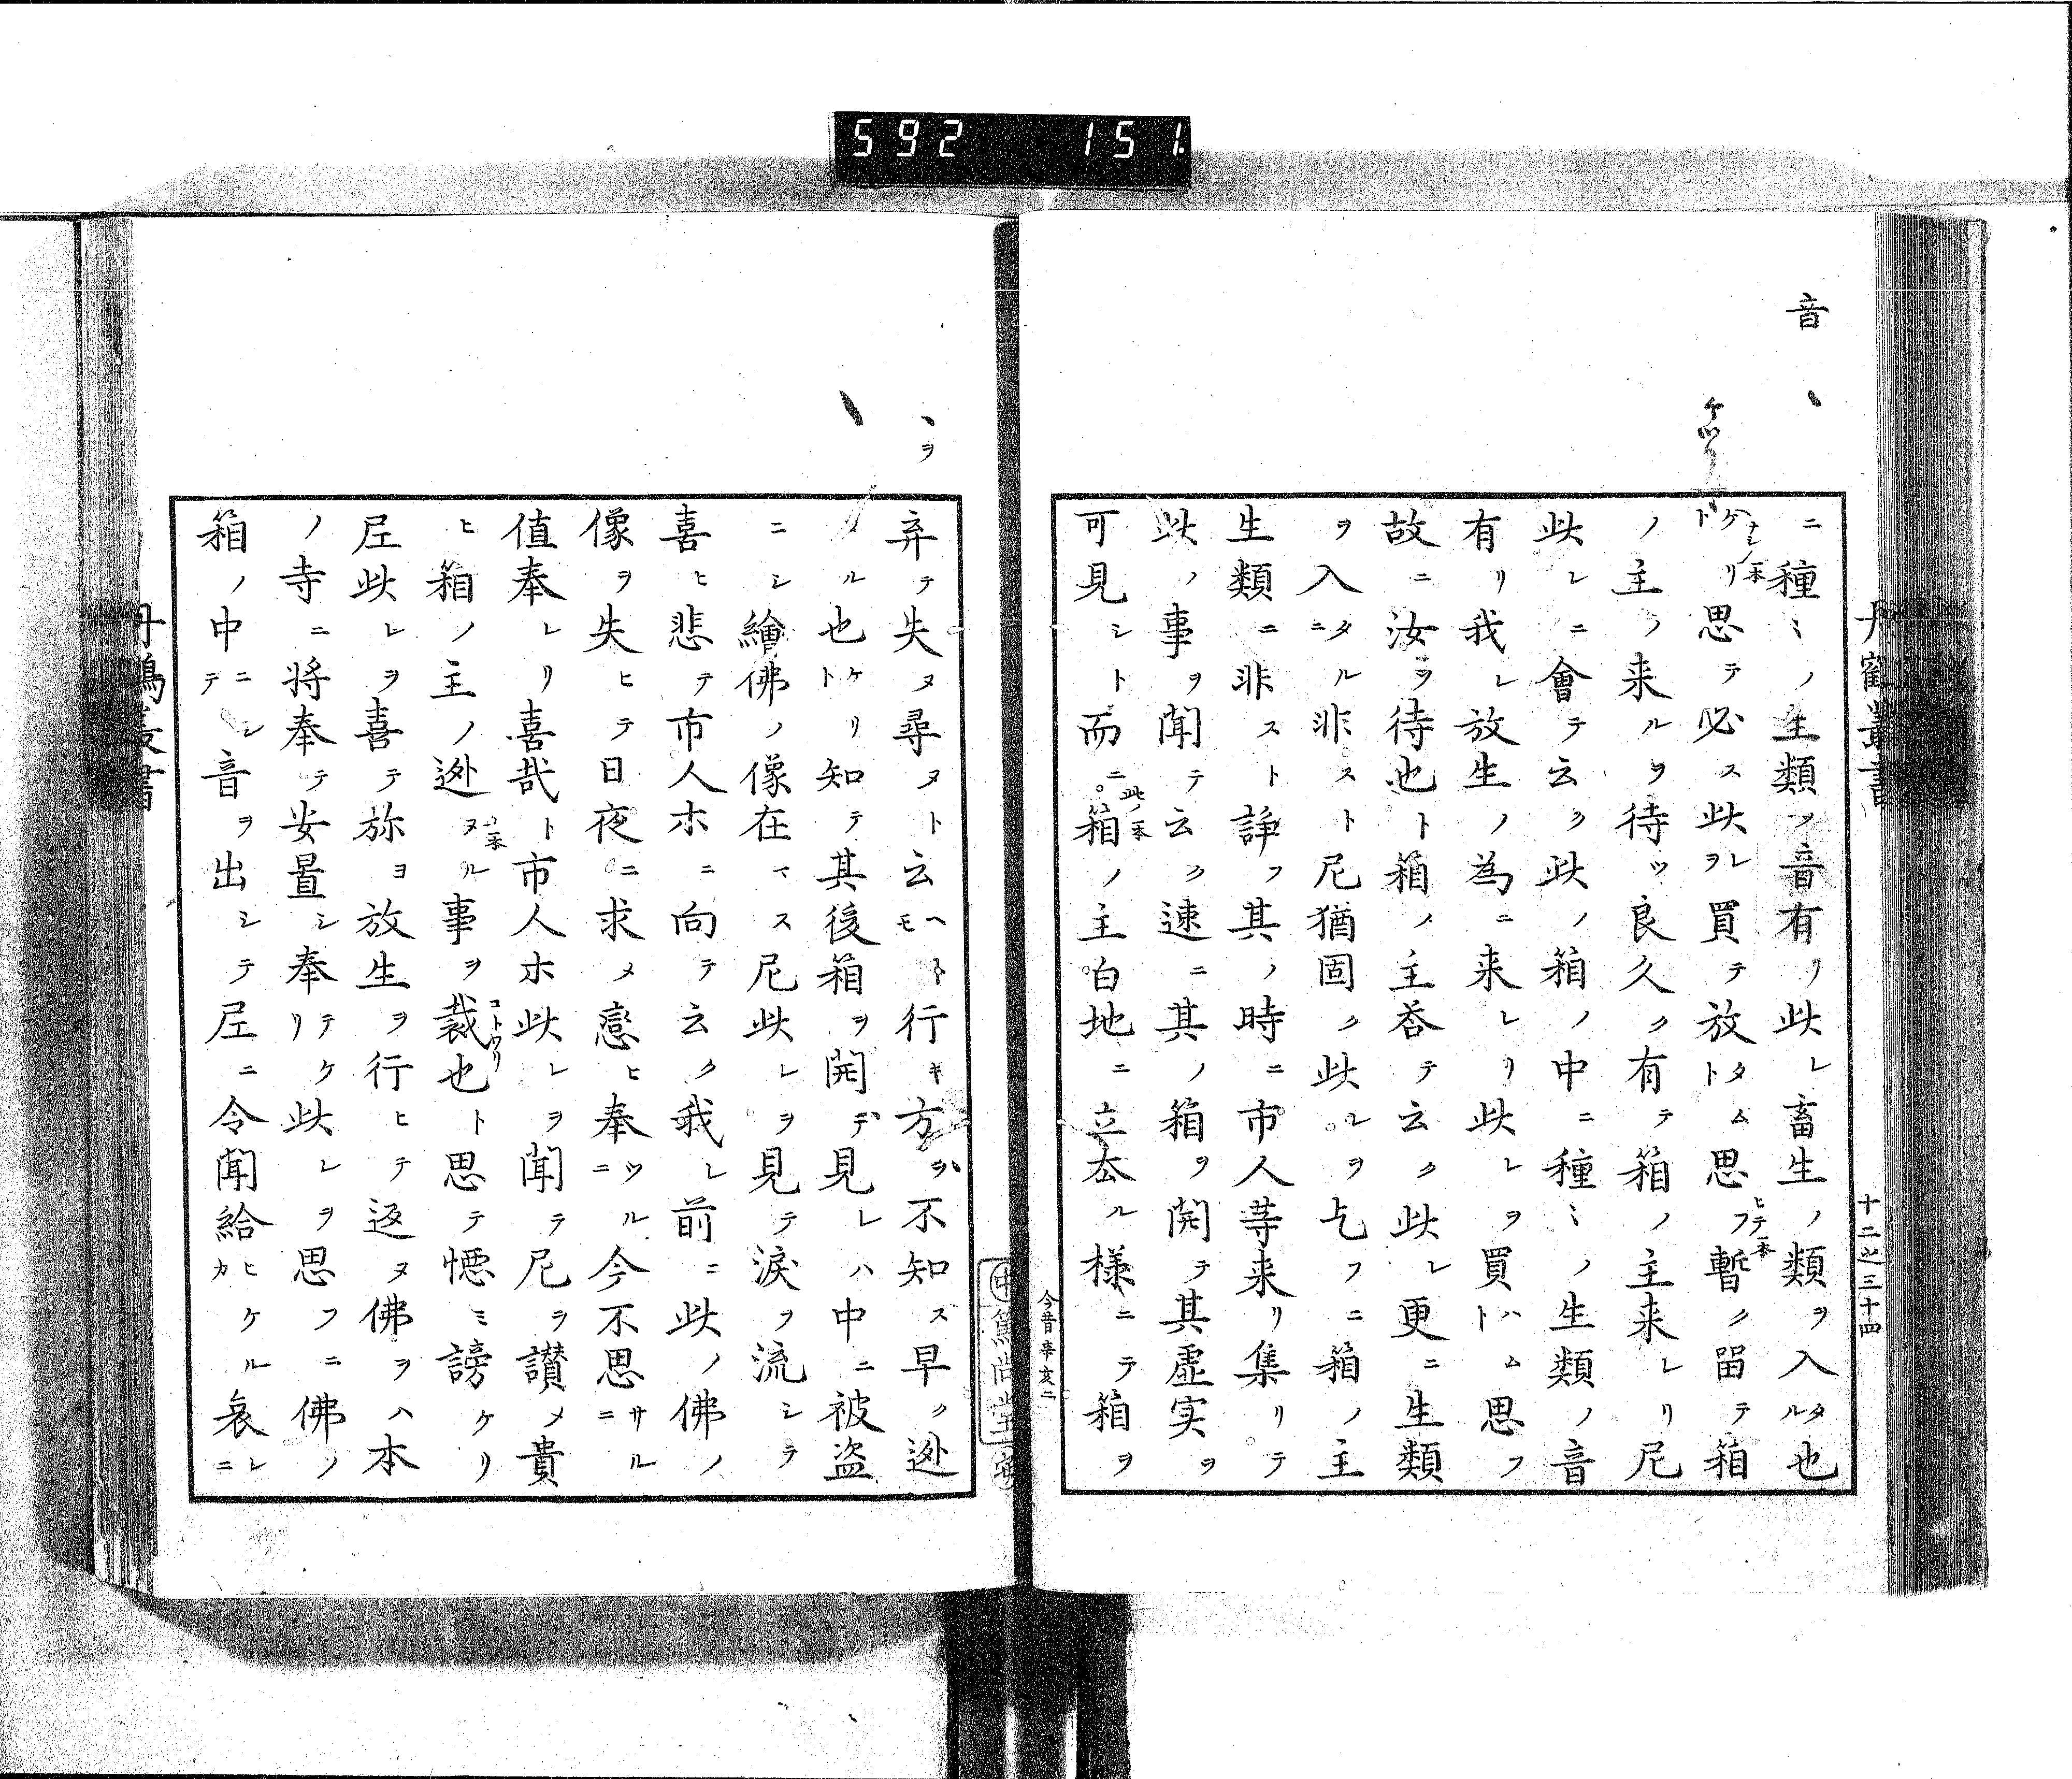 592 151.
音 、
丹鶴叢書
十二之三十四
ニ種ミノ生類ノ音有リ此レ畜生ノ類ヲ入タル也
ケリ思テ必ス此レヲ買テ放タムト思フ暫ク留テ箱
ノ主ノ来ルヲ待ツ良久ク有テ箱ノ主来レリ尼
此レニ會テ云ク此ノ箱ノ中ニ種ミノ生類ノ音
有リ我レ放生ノ為ニ来レリ此レヲ買ハムト思フ
故ニ汝ヲ待也ト箱ノ主荅テ云ク此レ更ニ生類
ヲ入タルニ非スト尼猶固ク此レヲ乞フニ箱ノ主
生類ニ非スト諍フ其ノ時ニ市人等来リ集リテ
此ノ事ヲ聞テ云ク速ニ其ノ箱ヲ開テ其虚实ヲ
可見シト而ニ箱ノ主白地ニ立厺ル様ニテ箱ヲ
此ノ一本
ヒテ一本
今昔辛亥二
、ヲ
弃テ失ヌ尋ヌト云ヘトモ行キ方ヲ不知ス早ク逊
ノル也ケリト知テ其後箱ヲ開テ見レハ中ニ被盗
ニシ繪佛ノ像在マス尼此レヲ見テ淚ヲ流シテ
喜ヒ悲テ市人ホニ向テ云ク我レ前ニ此ノ佛ノ
像ヲ失ヒテ日夜ニ求メ戀ヒ奉ツルニ今不思サルニ
値奉レリ喜哉ト市人ホ此レヲ聞テ尼ヲ讃メ貴
ヒ箱ノ主ノ逊ヌル事ヲ裁也ト思テ憾ミ謗ケリ
コトワリ
𡰱此レヲ喜テ弥ヨ放生ヲ行ヒテ返ヌ佛ヲハ本
ノ寺ニ将奉テ安置シ奉テケリ此レヲ思フニ佛ノ
箱ノ中ニシテ音ヲ出シテ𡰱ニ令聞給ヒケルカ哀レニ